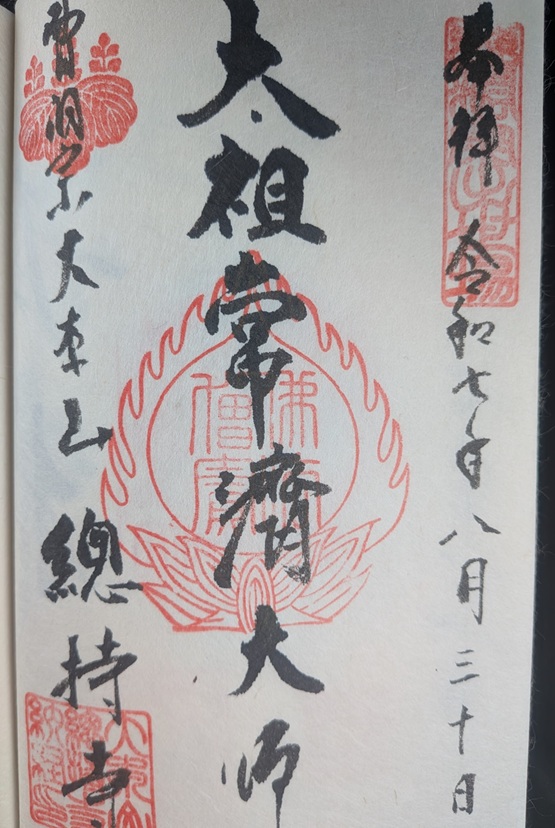 奉拝 令和七年八月三十日
太祖常濟大師
曹洞宗大本山總持寺
佛法僧寶